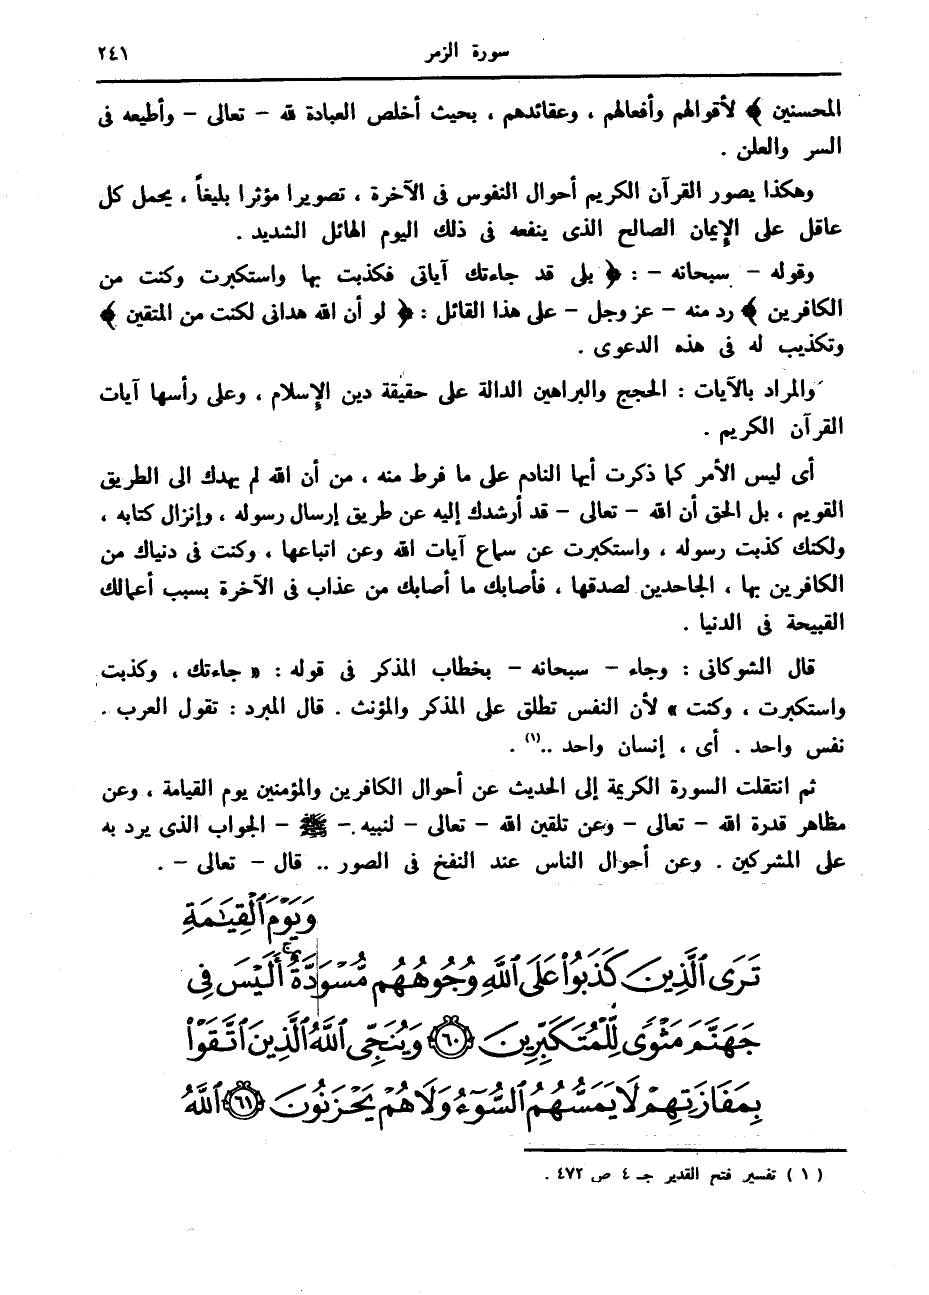 سورة الزمر ٢٤١
المحسنين ﴾ لأقوالهم وأفعالهم ، وعقائدهم ، بحيث أخلص العبادة لله – تعالى – وأطيعه فى
السر والعلن .
وهكذا يصور القرآن الكريم أحوال النفوس فى الآخرة ، تصويرا مؤثرا بليغاً ، يحمل كل
عاقل على الإيمان الصالح الذى ينفعه فى ذلك اليوم الهائل الشديد .
وقوله – سبحانه – : ﴿ بلى قد جاءتك آياتى فكذبت بها واستكبرت وكنت من
الكافرين ﴾ رد منه – عز وجل – على هذا القائل : ﴿ لو أن الله هدانى لكنت من المتقين ﴾
وتكذيب له فى هذه الدعوى .
والمراد بالآيات : الحجج والبراهين الدالة على حقيقة دين الإسلام ، وعلى رأسها آيات
القرآن الكريم .
أى ليس الأمر كما ذكرت أيها النادم على ما فرط منه ، من أن الله لم يهدك الى الطريق
القويم ، بل الحق أن الله – تعالى – قد أرشدك إليه عن طريق إرسال رسوله ، وإنزال كتابه ،
ولكنك كذبت رسوله ، واستكبرت عن سماع آيات الله وعن اتباعها ، وكنت فى دنياك من
الكافرين بها ، الجاحدين لصدقها ، فأصابك ما أصابك من عذاب فى الآخرة بسبب أعمالك
القبيحة فى الدنيا .
قال الشوكانى : وجاء – سبحانه – بخطاب المذكر فى قوله : « جاءتك ، وكذبت
واستكبرت ، وكنت » لأن النفس تطلق على المذكر والمؤنث . قال المبرد : تقول العرب .
نفس واحد . أى ، إنسان واحد ..(١) .
ثم انتقلت السورة الكريمة إلى الحديث عن أحوال الكافرين والمؤمنين يوم القيامة ، وعن
مظاهر قدرة الله – تعالى – وعن تلقين الله – تعالى – لنبيه – ﷺ – الجواب الذى يرد به
على المشركين . وعن أحوال الناس عند النفخ فى الصور .. قال – تعالى – .
وَيَوْمَ ٱلْقِيَٰمَةِ
تَرَى ٱلَّذِينَ كَذَبُوا۟ عَلَى ٱللَّهِ وُجُوهُهُم مُّسْوَدَّةٌ ۚ أَلَيْسَ فِى
جَهَنَّمَ مَثْوًى لِّلْمُتَكَبِّرِينَ ﴿٦٠﴾ وَيُنَجِّى ٱللَّهُ ٱلَّذِينَ ٱتَّقَوْا۟
بِمَفَازَتِهِمْ لَا يَمَسُّهُمُ ٱلسُّوٓءُ وَلَا هُمْ يَحْزَنُونَ ﴿٦١﴾ ٱللَّهُ
( ١ ) تفسير فتح القدير جـ ٤ ص ٤٧٢ .